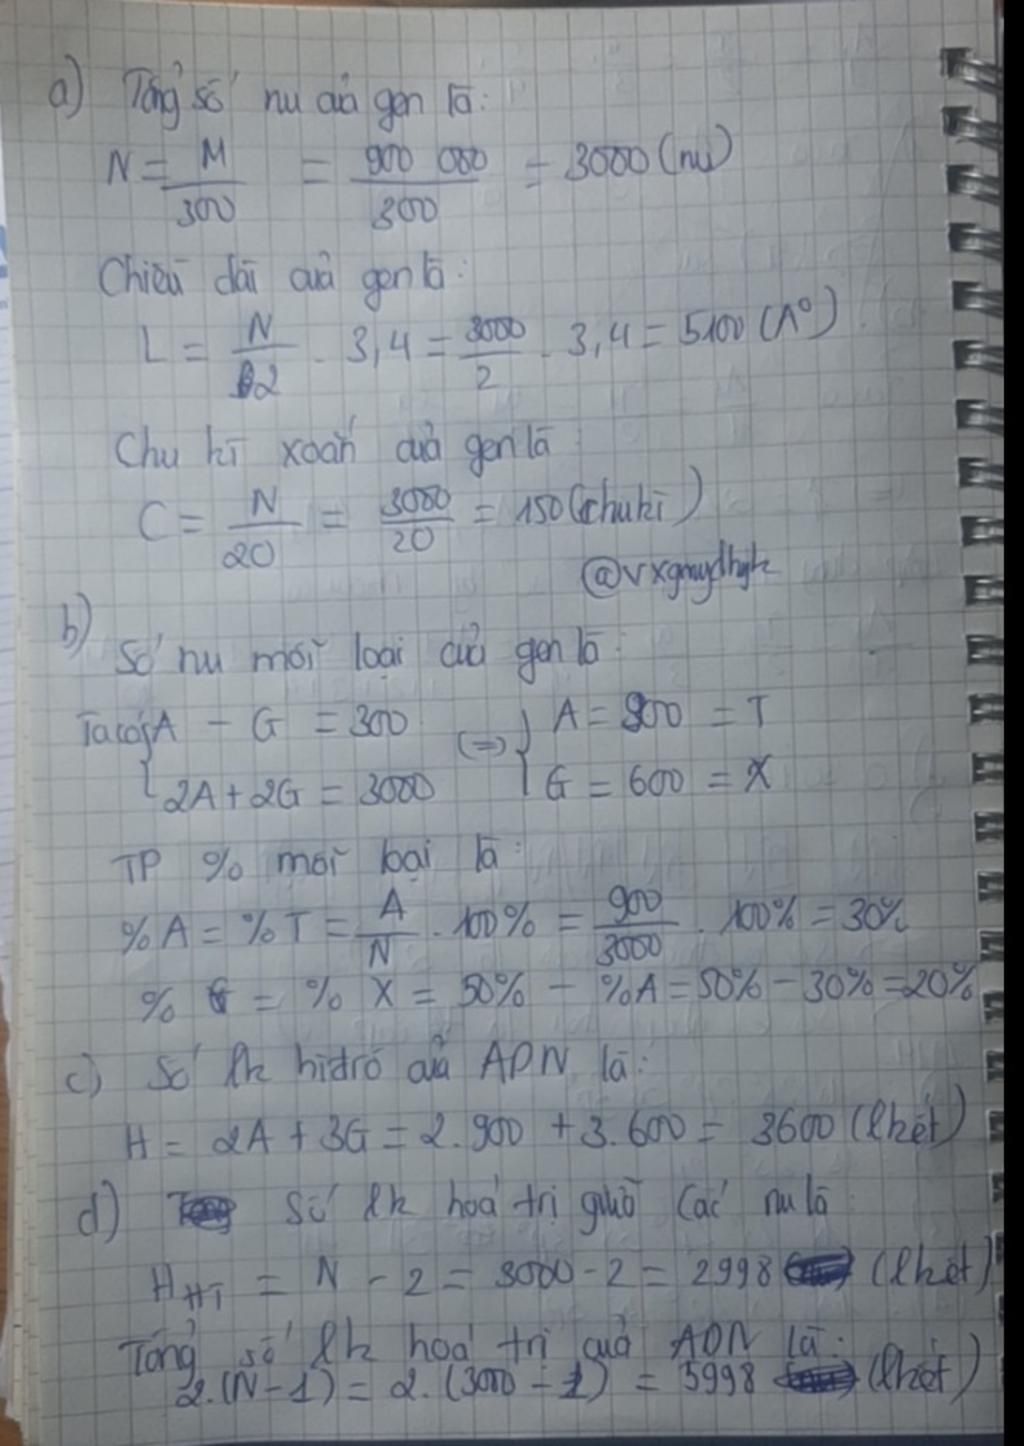 a) Tổng số nu của gen là:
N = M/300 = 900 000/300 = 3000 (nu)
Chiều dài của gen là:
L = N/2 . 3,4 = 3000/2 . 3,4 = 5100 (A°)
Chu kì xoắn của gen là:
C = N/20 = 3000/20 = 150 (chu kì)
@vxgmydhgk
b)
Số nu mỗi loại của gen là:
Ta có { A - G = 300 (=) { A = 900 = T
2A + 2G = 3000 G = 600 = X
TP % mỗi loại là:
% A = % T = A/N . 100% = 900/3000 . 100% = 30%
% G = % X = 50% - %A = 50% - 30% = 20%
c) Số lk hidrô của ADN là:
H = 2A + 3G = 2.900 + 3.600 = 3600 (lkết)
d) Số lk hoá trị giữa các nu là
HHT = N - 2 = 3000 - 2 = 2998 (lkết)
Tổng số lk hoá trị của ADN là:
2.(N-1) = 2.(3000 - 1) = 5998 (lkết)